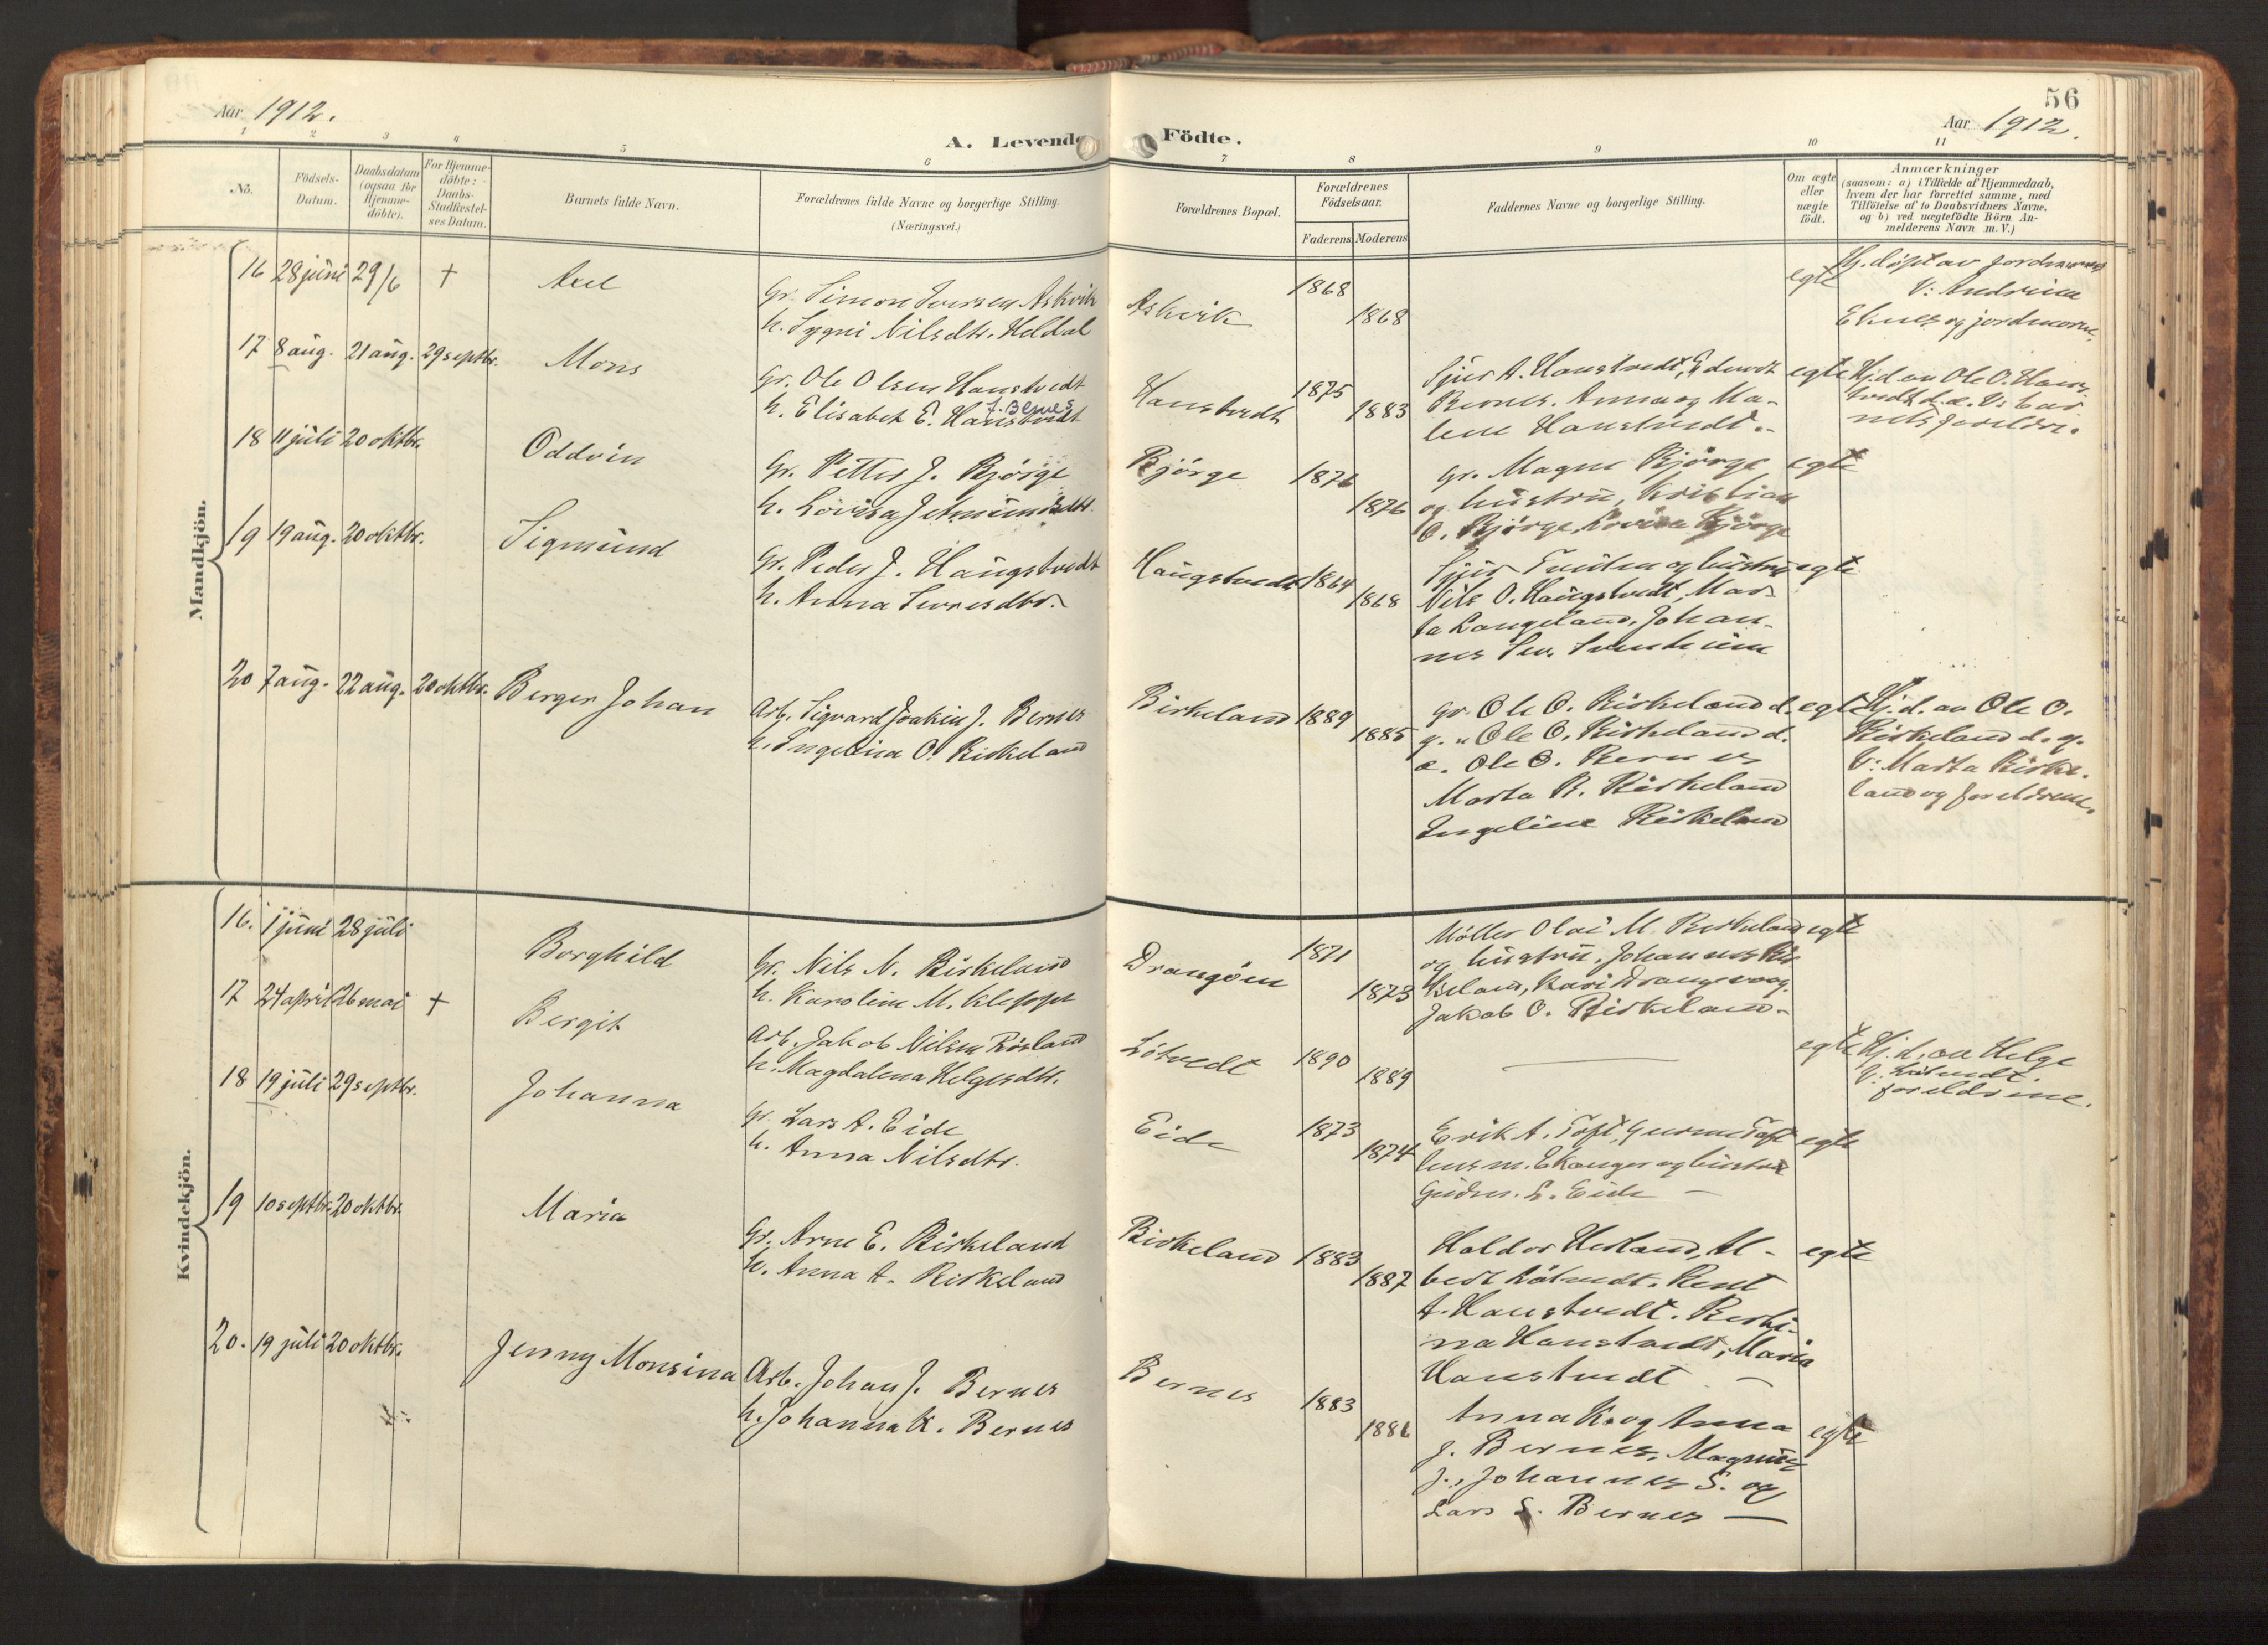 56
Aar 1912.
Aar 1912.
A. Levende Födte.
1 2 3 4 5 6 7 8 9 10 11
No.
Födsels-Datum.
Daabsdatum (ogsaa for Hjemme-döbte).
For Hjemme-döbte: Daabs-Stadfæstel-ses Datum.
Barnets fulde Navn.
Forældrenes fulde Navne og borgerlige Stilling. (Næringsvei.)
Forældrenes Bopæl.
Forældrenes Födselsaar.
Faderens Moderens
Faddernes Navne og borgerlige Stilling.
Om ægte eller uægte födt.
Anmærkninger
(saasom: a) i Tilfælde af Hjemmedaab,
hvem der har forrettet samme, med
Tilföielse af to Daabsvidners Navne.
og b) ved uægtefödte Börn An-
melderens Navn m. V.)
Mandkjön.
16 28 juni 29/6 † Axel
Gr. Simon Iversen Askvik
h. Sygni Nilsdtr. Heldal
Askvik 1868 1868
egte
Hj. döpt av jordmoren
V: Andrina
Eknes og jordmoren.
17 8 aug. 21 aug. 29 septbr. Mons
Gr. Ole Olsen Haustvedt
f. Bernes
h. Elisabet E. Haustvedt
Haustvedt 1875 1883
Sjur A. Haustvedt, Edvart
Bernes. Anna og Ma-
lene Haustvedt.-
egte
Hj. d. av Ole O. Haus-
tvedt d. æ. V: bar-
nets foreldre.
18 11 juli 20 oktbr. Oddvin
Gr. Petter J. Bjørge
h. Lovisa Jetmundsdtr.
Bjørge 1876 1876
gr. Magne Bjørge
og hustru, Kristian
O. Bjørge, Lovisa Bjørge
egte
19 19 aug. 20 oktbr. Sigmund
Gr. Peder J. Haugstvedt
h. Anna Iversdtr.
Haugstvedt 1864 1868
Sjur og hustru
Nils O. Haugstvedt, Mar-
ta Langeland, Johan-
nes
egte
20 7 aug. 22 aug. 20 oktbr. Berger Johan
Arb. Sigvard Joakim J. Bernes
h. Engelina O. Birkeland
Birkeland 1889 1885
gr. Ole O. Birkeland d.
y. Ole O. Birkeland d.
æ. Ole O. Bernes
Marta B. Birkeland
Engeline Birkeland
egte
Hj. d. av Ole O.
Birkeland d. y.
V: Marta Birke-
land og foreldrene.
Kvindekjön.
16. 1 juni 28 juli Borghild
Gr. Nils N. Birkeland
h. Karoline M. Kleppe
Drangöen 1871 1873
Møller Olai M. Birkeland
og hustru, Johannes Bir
keland, Kari Drangevåg.
Jakob O. Birkeland.-
egte
17 24 april 26 mai † Bergit
Arb. Jakob Nilsen Røsland
h. Magdalena Helgesdtr.
Løtvedt 1890 1889
—
egte
Hj. d. av Helge
Løtvedt.
V: foreldrene.
18 19 juli 29 septbr. Johanna
Gr. Lars A. Eide
h. Anna Nilsdtr.
Eide 1873 1874
Erik A. Toft, Toft
lensm. Ekanger og hustru
Gudm. L. Eide —
egte
19 10 septbr. 20 oktbr. Maria
Gr. Arne E. Birkeland
h. Anna A. Birkeland
Birkeland 1883 1887
Haldor Hesland, Al-
bert Løtvedt. Bent
A. Haustvedt. Berti-
na Haustvedt, Maria
Haustvedt —
egte
20. 19 juli 20 oktbr. Jenny Monsina
Arb. Johan J. Bernes
h. Johanna K. Bernes
Bernes 1883 1886
Anna K. og Anna
J. Bernes, Magnus
J., Johannes S. og
Lars S. Bernes —
egte